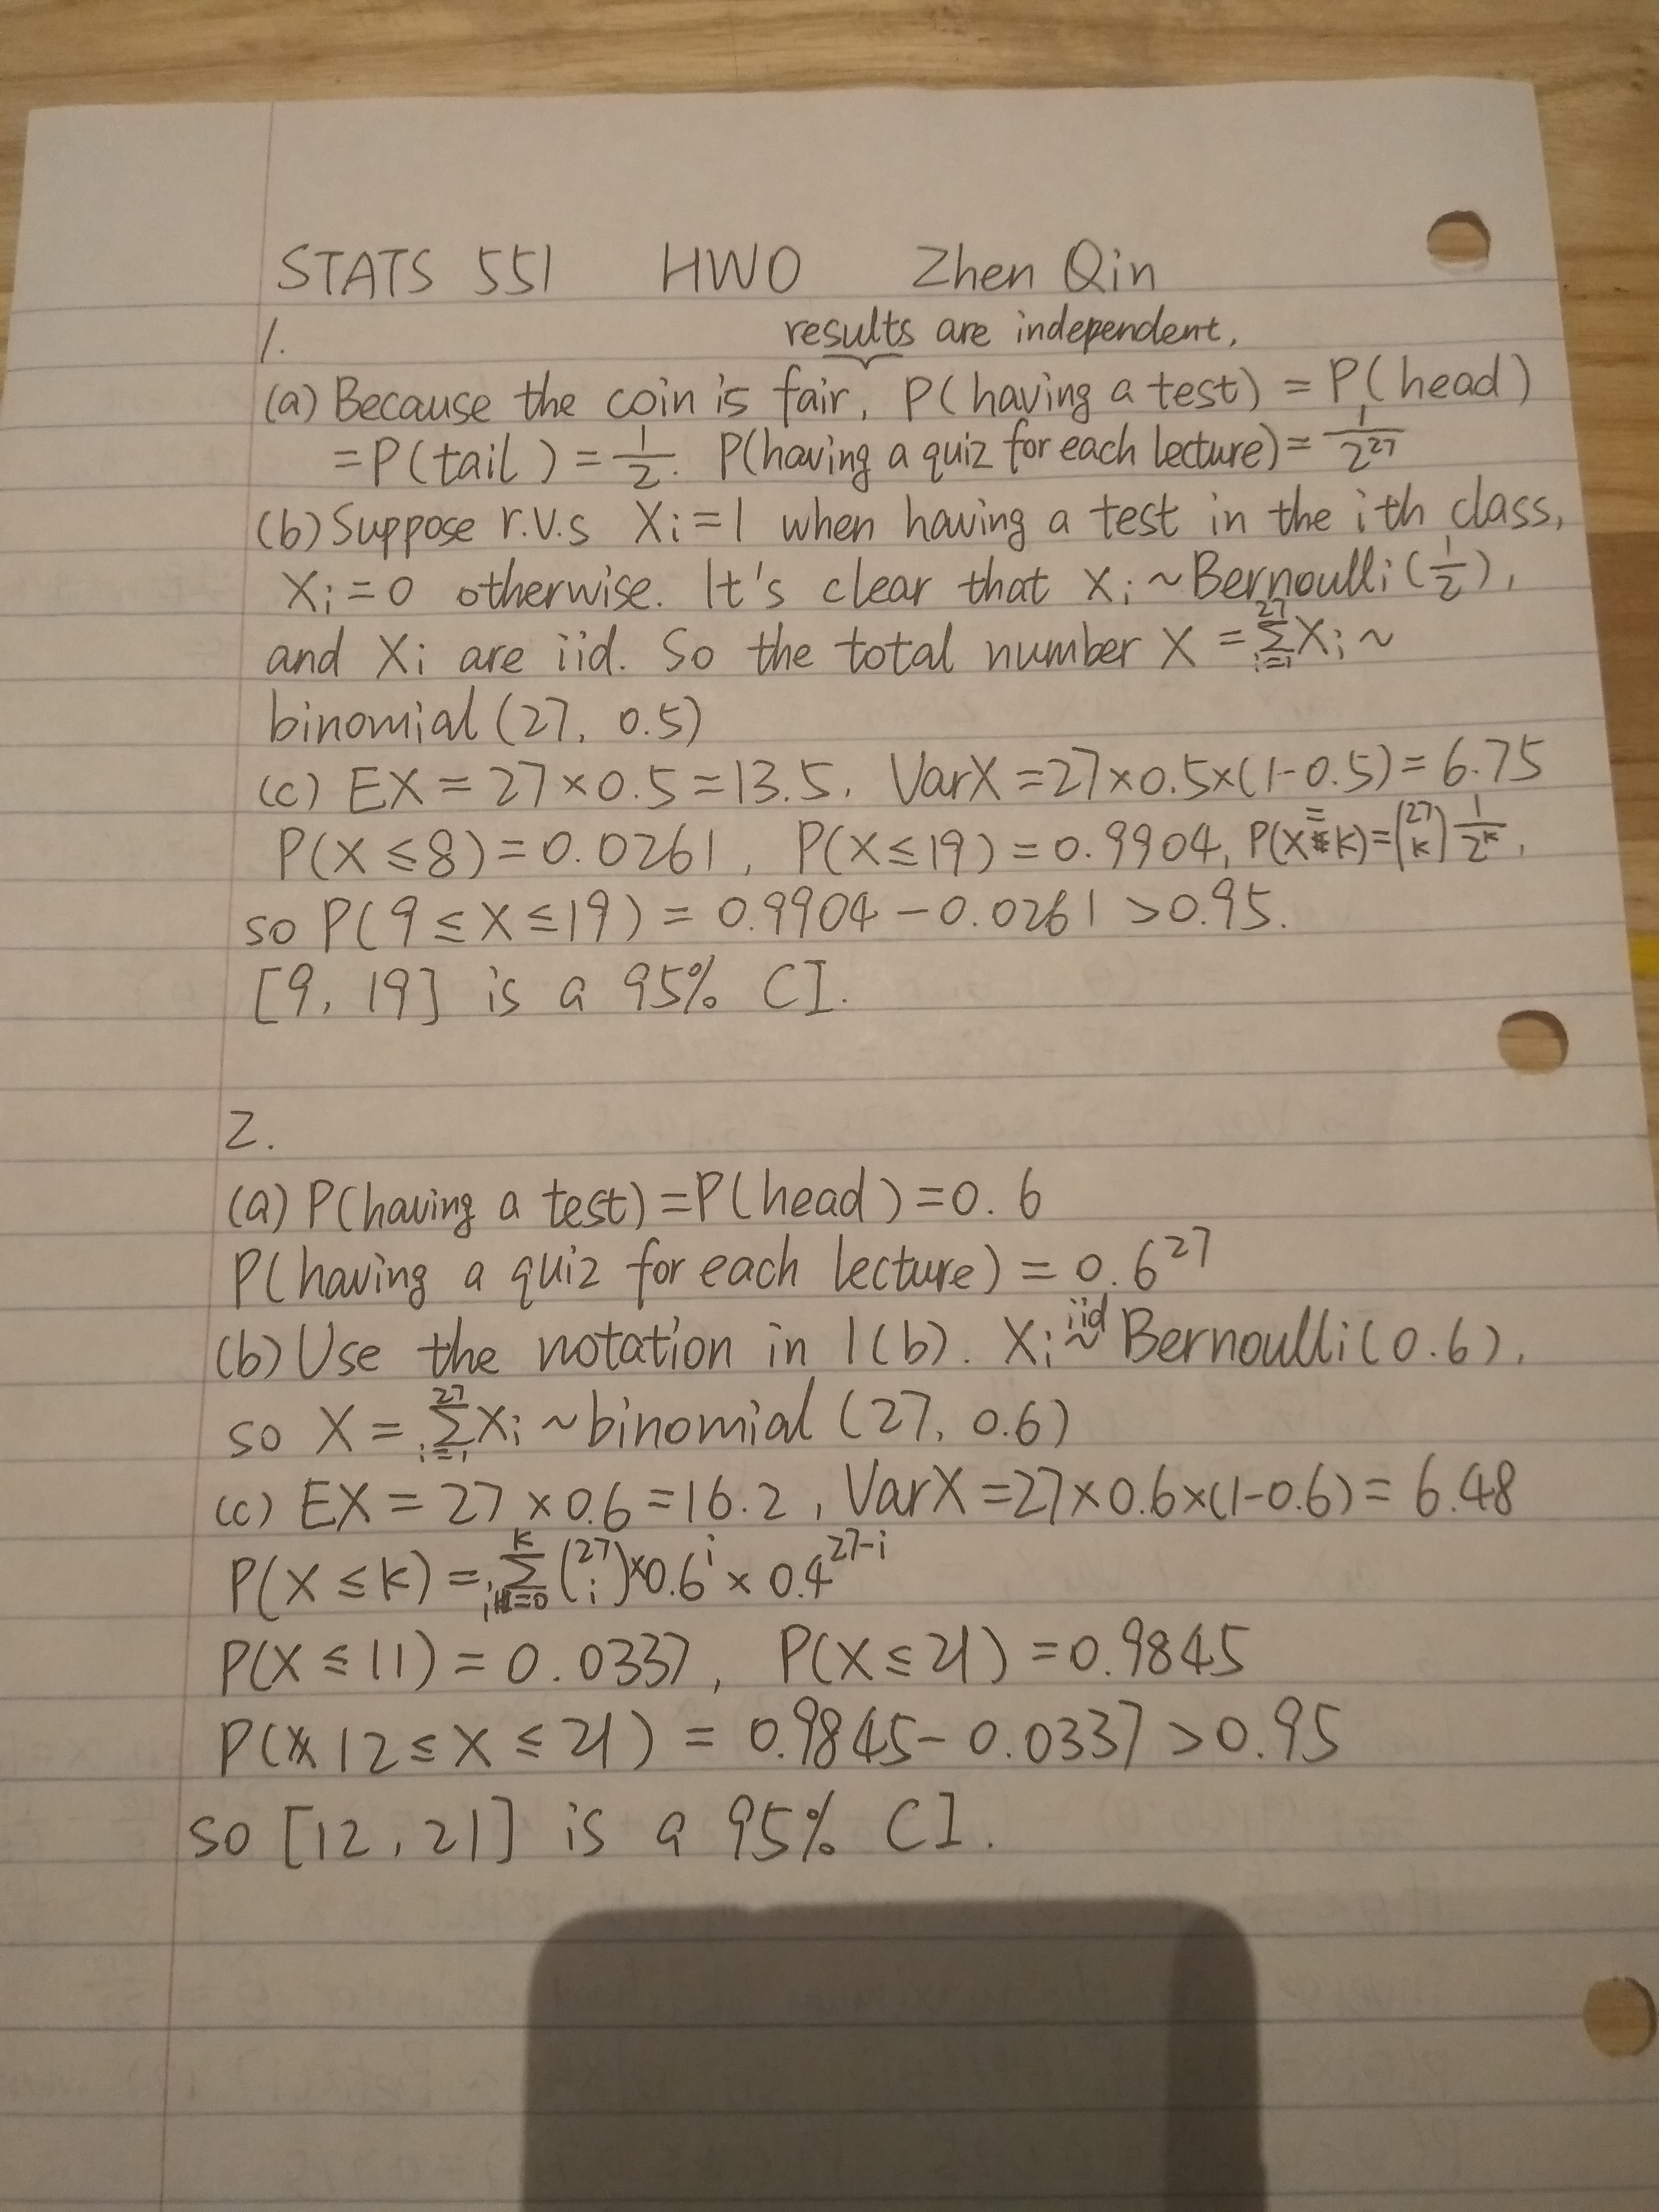 STATS 551 HW0 Zhen Qin
1. results are independent,
(a) Because the coin is fair, P(having a test) = P(head)
= P(tail) = 1/2. P(having a quiz for each lecture) = 1/2^27
(b) Suppose r.v.s Xi = 1 when having a test in the ith class,
Xi = 0 otherwise. It's clear that Xi ~ Bernoulli(1/2),
and Xi are iid. So the total number X = Σ_{i=1}^{27} Xi ~
binomial(27, 0.5)
(c) EX = 27 × 0.5 = 13.5, VarX = 27×0.5×(1-0.5) = 6.75
P(X ≤ 8) = 0.0261, P(X ≤ 19) = 0.9904, P(X = k) = (27 k) 1/2^k,
so P(9 ≤ X ≤ 19) = 0.9904 - 0.0261 > 0.95.
[9, 19] is a 95% CI.
2.
(a) P(having a test) = P(head) = 0.6
P(having a quiz for each lecture) = 0.6^27
(b) Use the notation in 1(b). Xi iid~ Bernoulli(0.6),
so X = Σ_{i=1}^{27} Xi ~ binomial(27, 0.6)
(c) EX = 27 × 0.6 = 16.2, VarX = 27×0.6×(1-0.6) = 6.48
P(X ≤ k) = Σ_{i=0}^{k} (27 i) × 0.6^i × 0.4^{27-i}
P(X ≤ 11) = 0.0337, P(X ≤ 21) = 0.9845
P(12 ≤ X ≤ 21) = 0.9845 - 0.0337 > 0.95
so [12, 21] is a 95% CI.